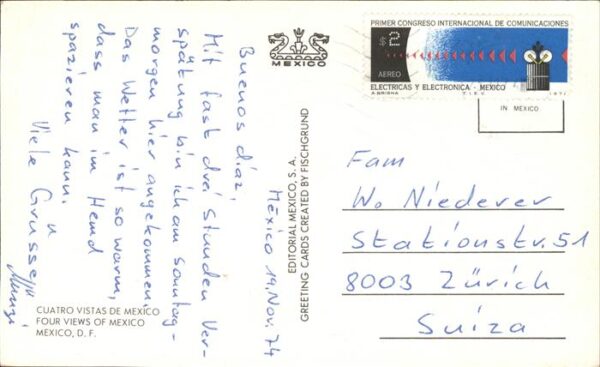 México 19. Nov. 74
Buenos díaz,
Mit fast drei Stunden Ver-
spätung bin ich am Sonntag-
morgen hier angekommen.
Das Wetter ist so warm,
dass man im Hemd
spazieren kann.
Viele Grüsse
CUATRO VISTAS DE MEXICO
FOUR VIEWS OF MEXICO
MEXICO, D. F.
MEXICO
EDITORIAL MEXICO, S. A.
GREETING CARDS CREATED BY FISCHGRUND
PRIMER CONGRESO INTERNACIONAL DE COMUNICACIONES
$2
AEREO
ELECTRICAS Y ELECTRONICA - MEXICO
IN MEXICO
Fam
W. Niederer
Stationstr. 51
8003 Zürich
Suiza